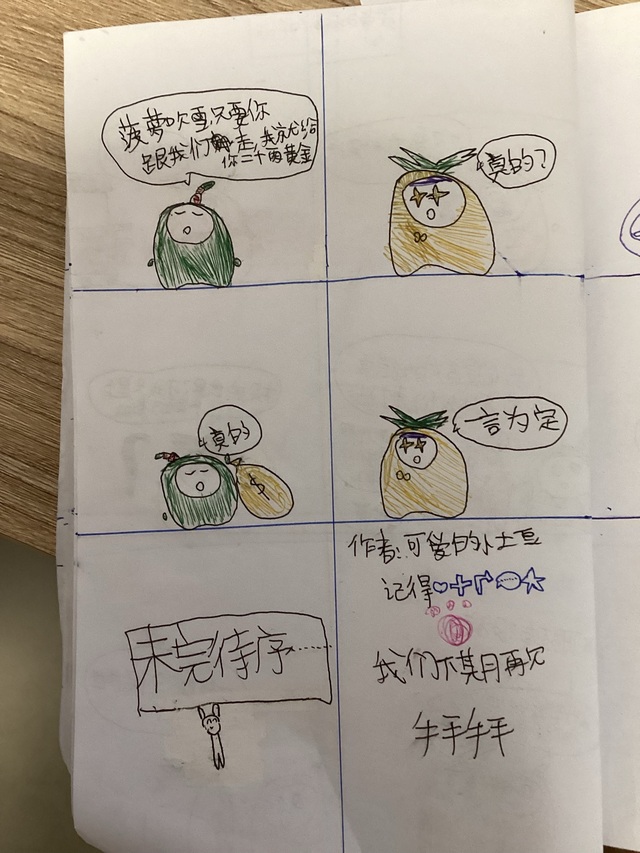 菠萝吹雪只要你
跟我们走,我就给
你二千两黄金
真的?
真的
一言为定
未完待序……
作者:可爱的小土豆
记得
我们下某月再欠